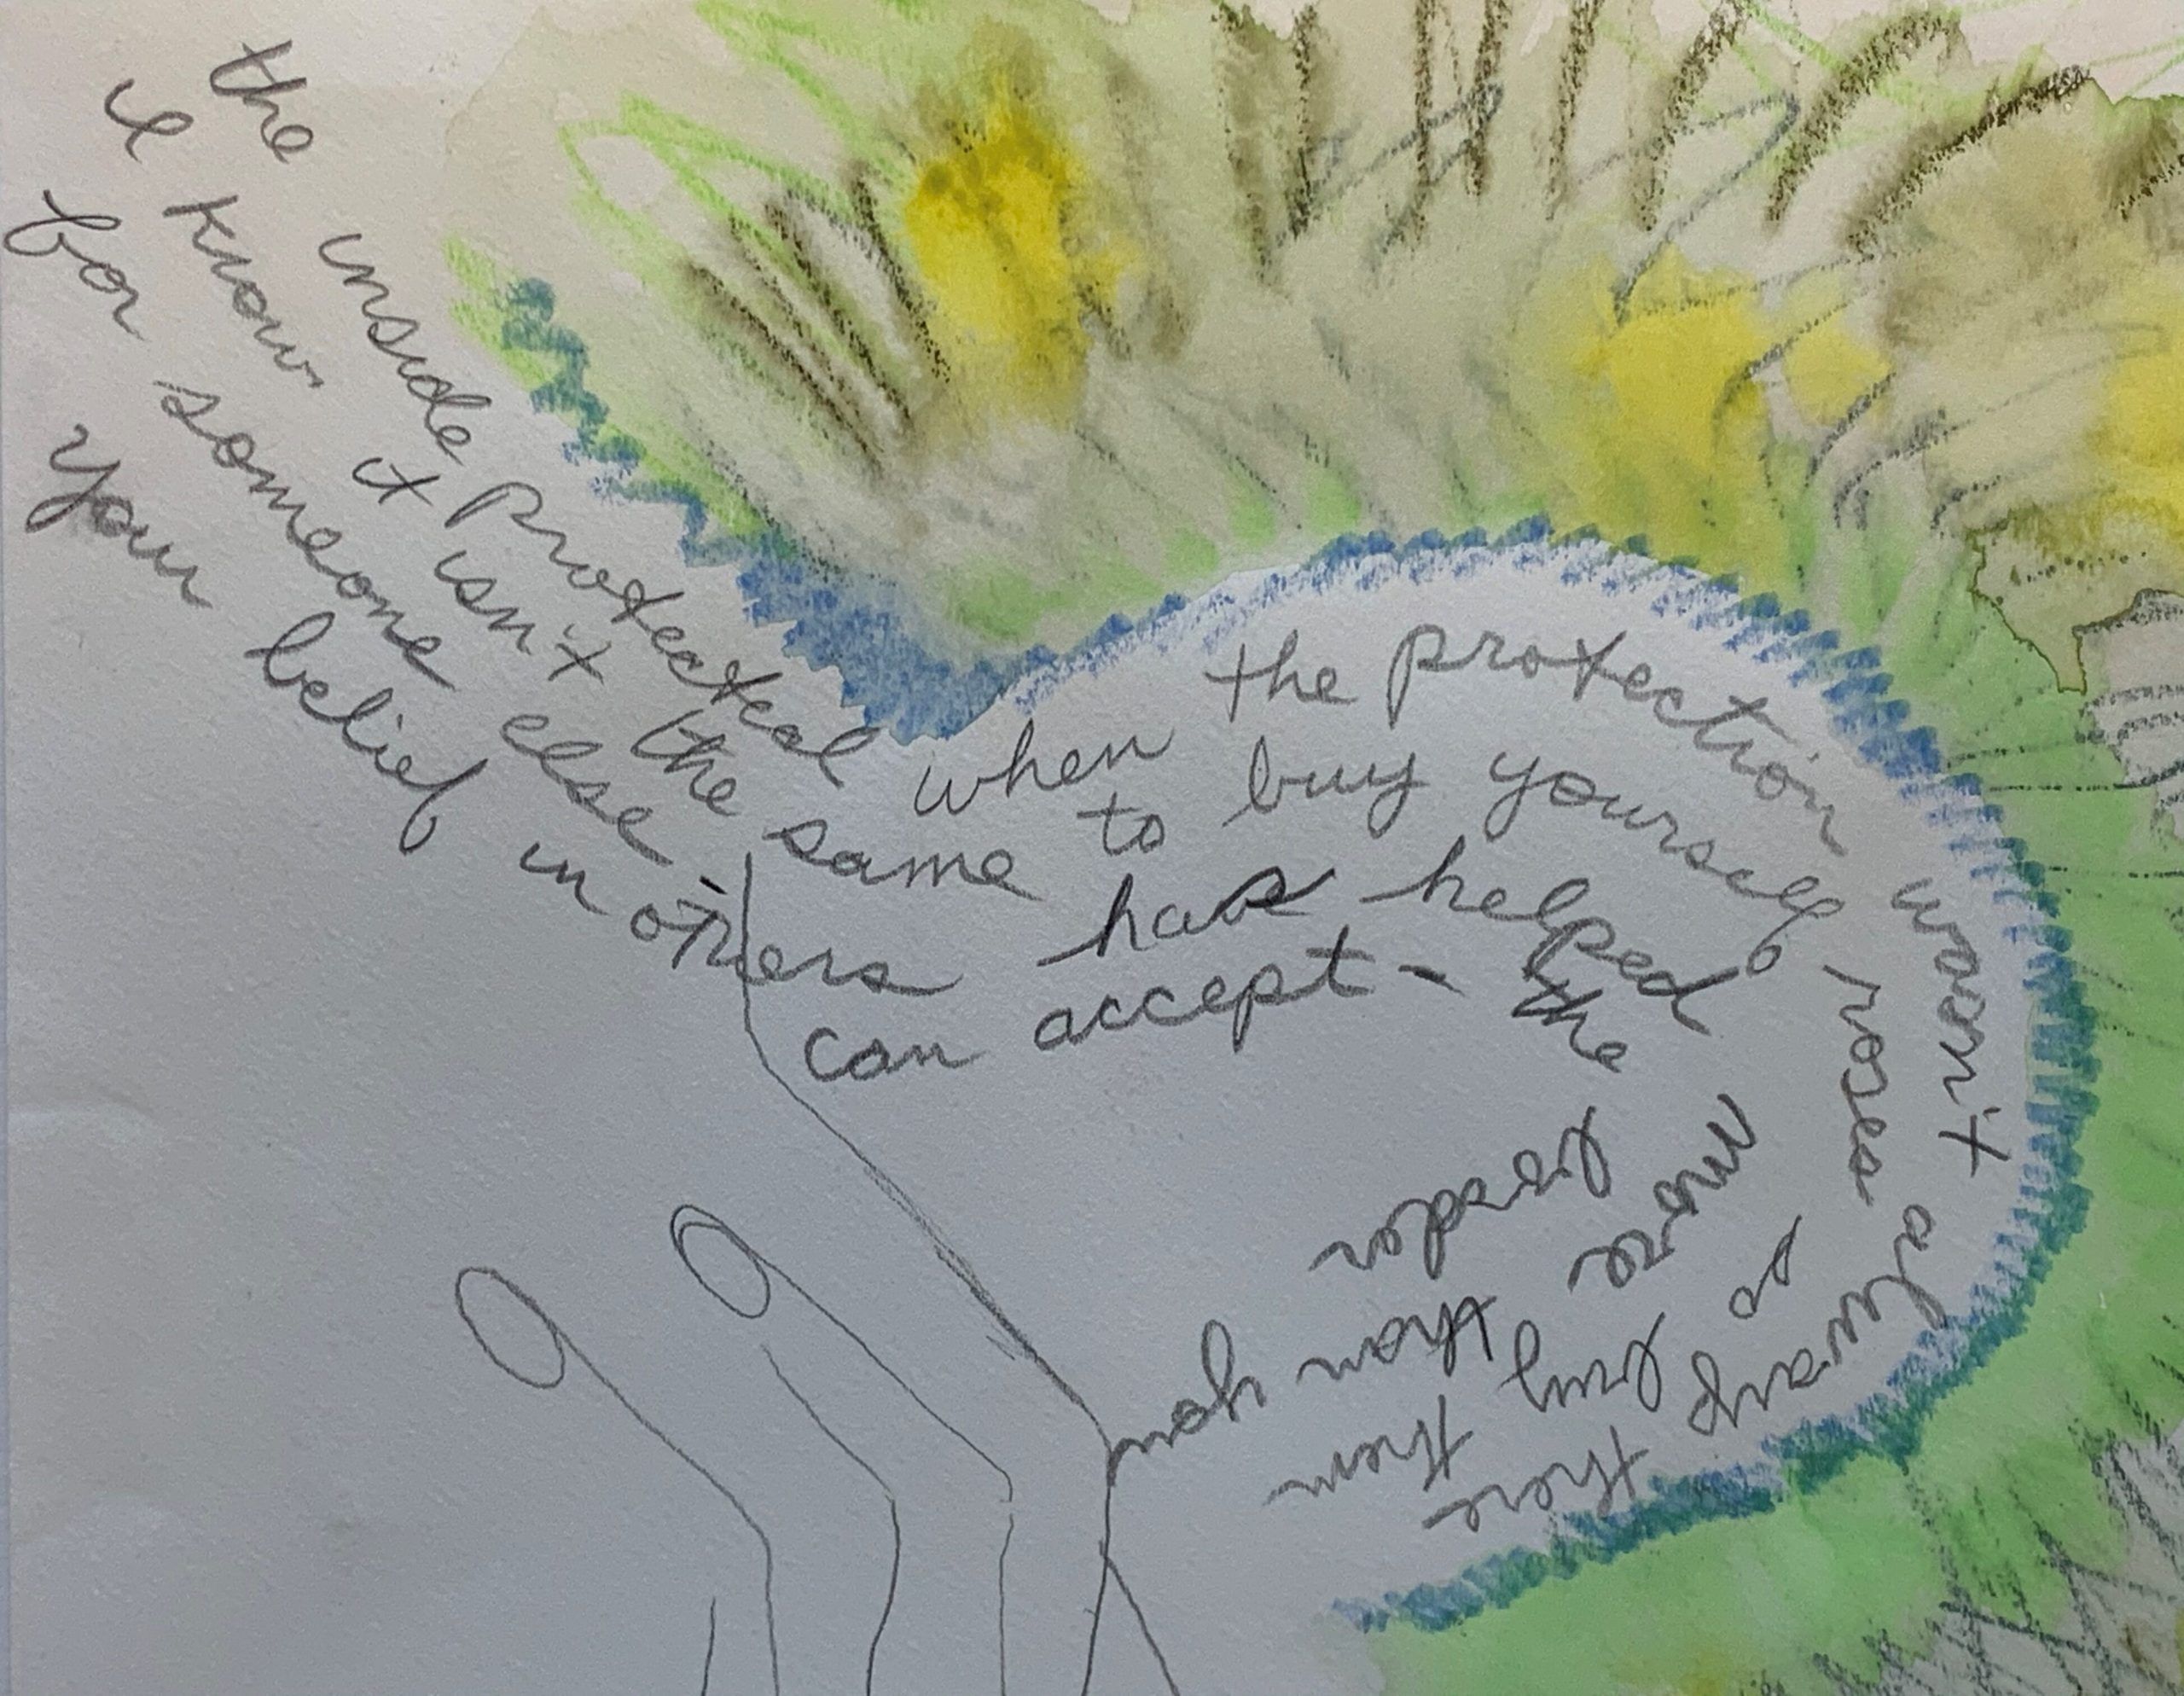 the inside protected when the protection wasn't always there
I know it isn't the same to buy yourself roses so buy them
for someone else - has helped more than you
your belief in others can accept - the